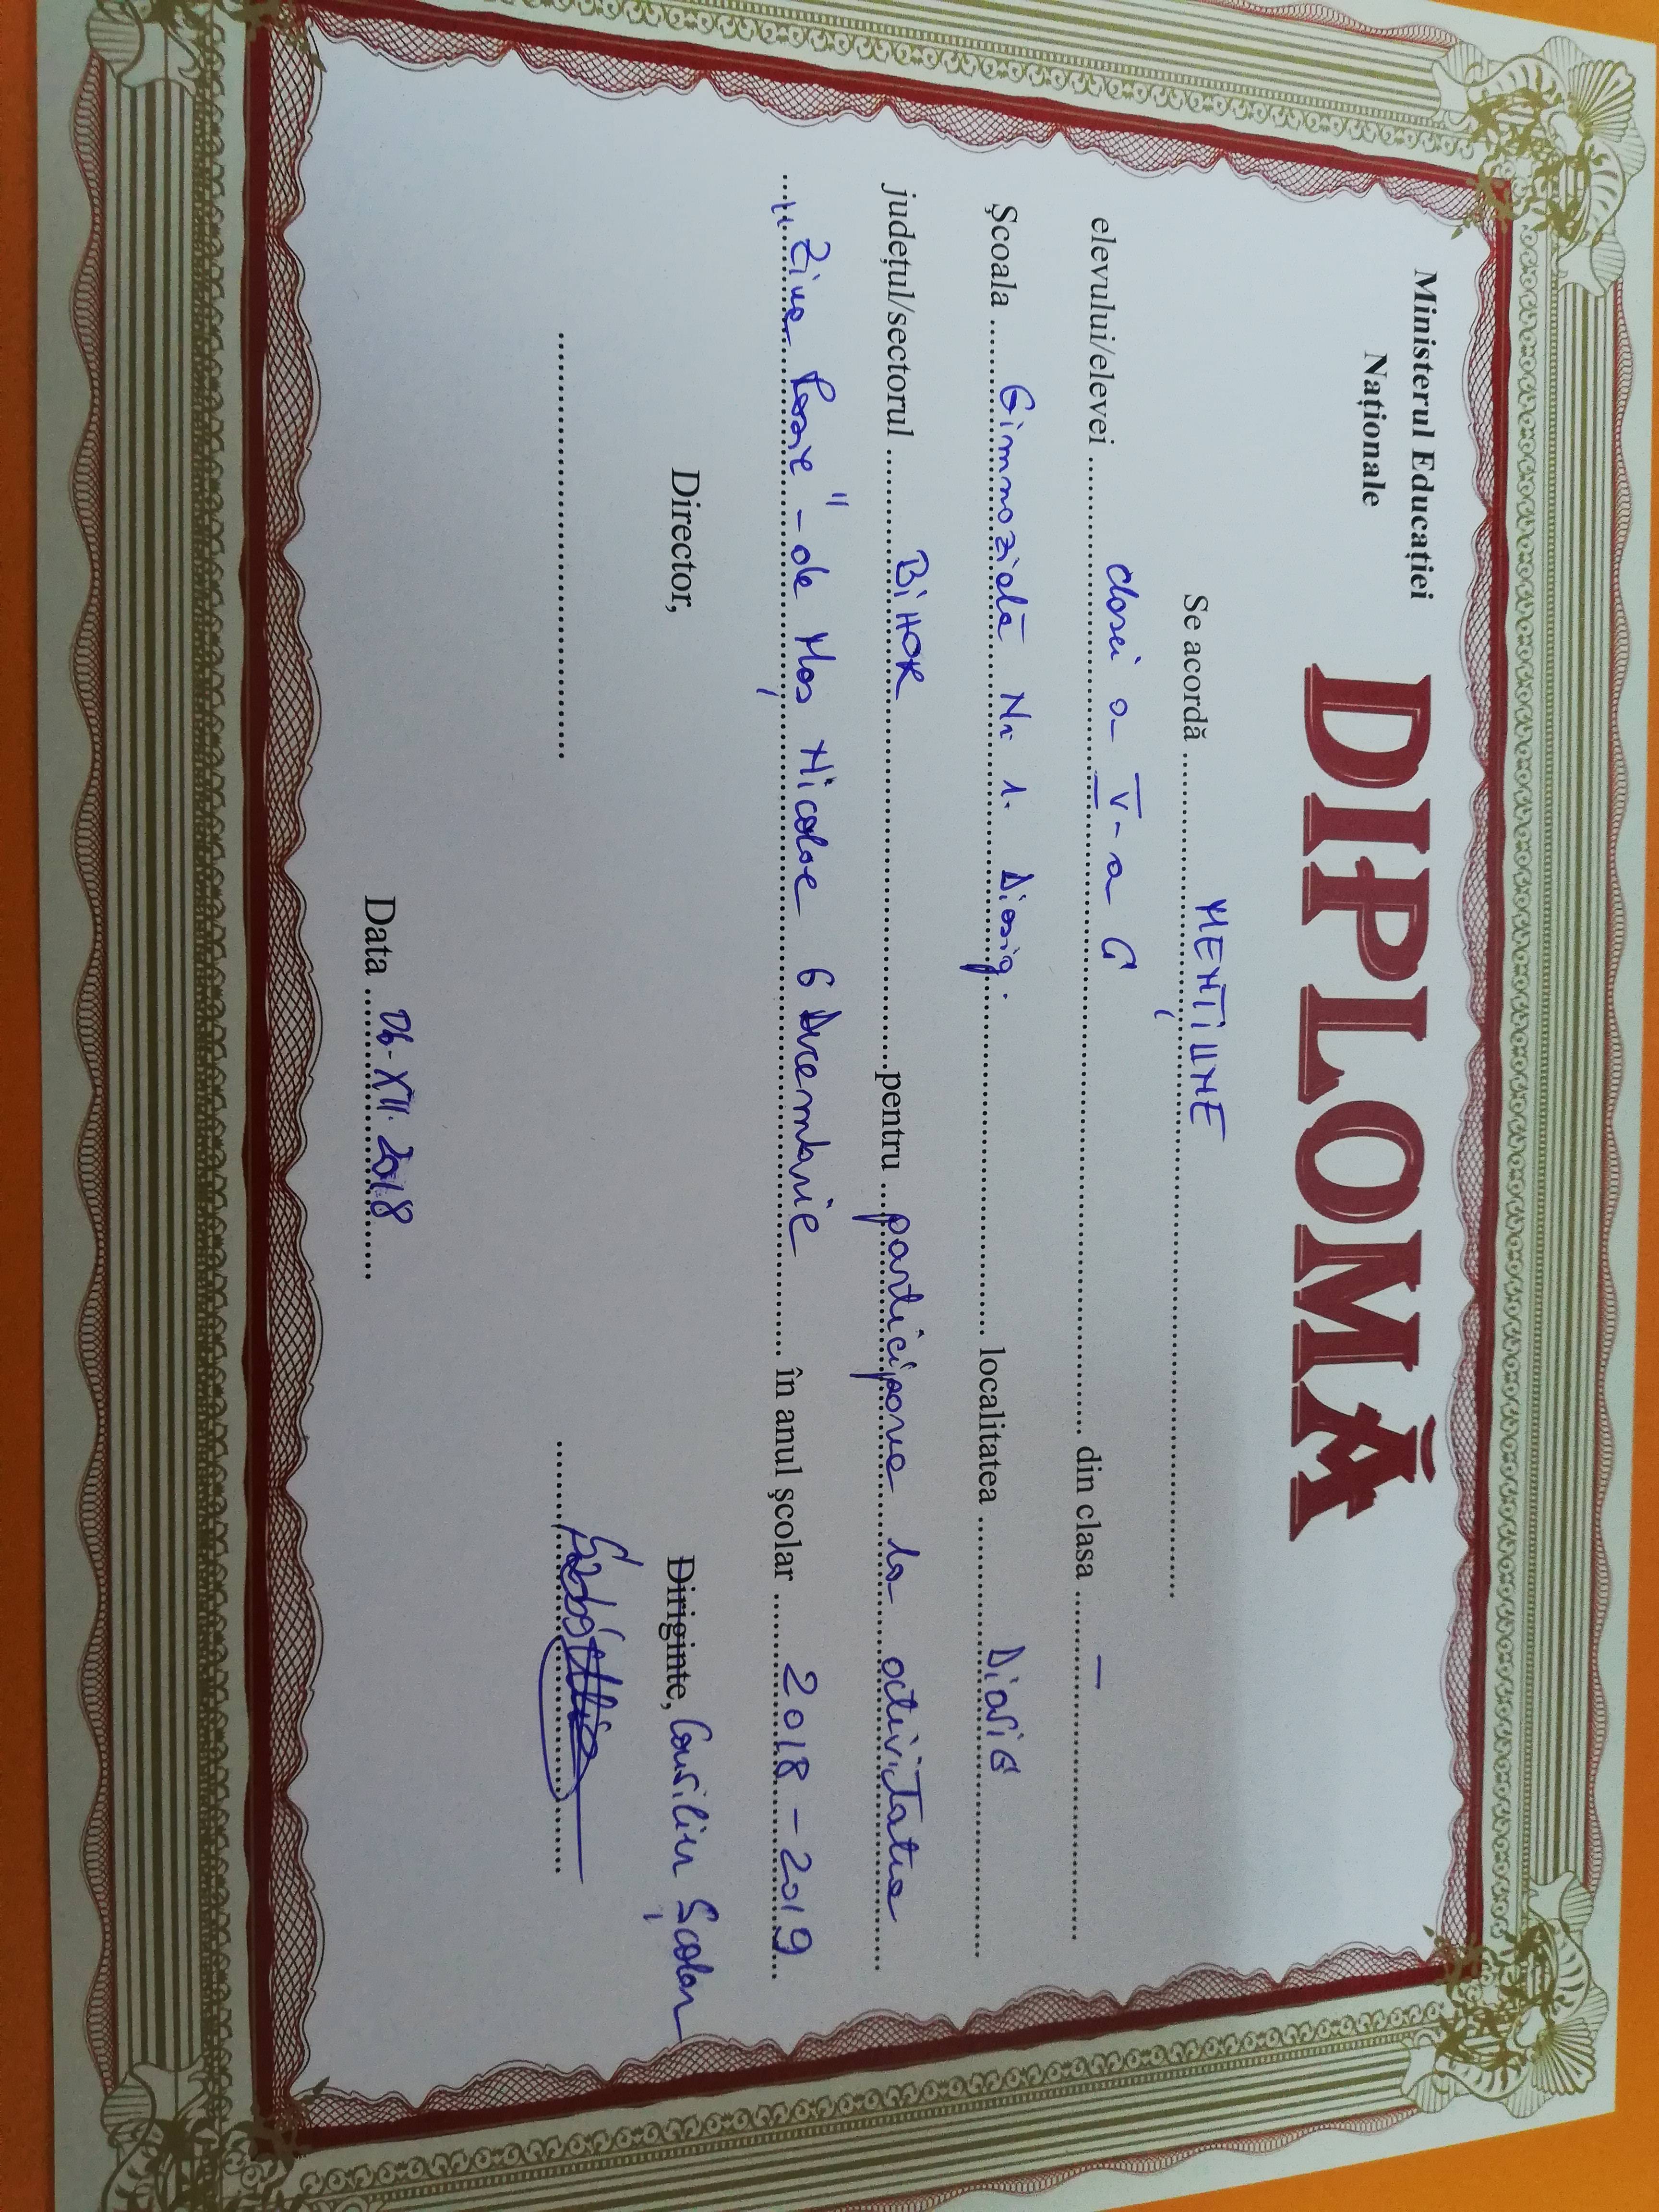 Ministerul Educației
Naționale
DIPLOMĂ
Se acordă ........ MENȚIUNE ........
elevului/elevei ........ clasei a V-a G ........ din clasa ........ – ........
Școala ........ Gimnazială Nr 1. Diosig. ........ localitatea ........ DiosiG ........
județul/sectorul ........ BiHOR ........ pentru ... participarea la activitatea
... „Ziua Roșie" - de Moș Nicolae 6 Decembrie ........ în anul școlar ........ 2018 - 2019 ...
Director, Diriginte, Consiliu Școlar
Data ........ 06-XII. 2018 ........